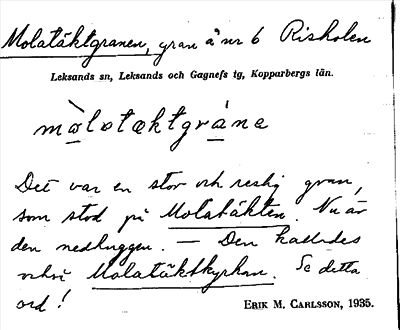 Molatäktgranen, gran å nr 6 Risholen
Leksands sn, Leksands och Gagnefs tg, Kopparbergs län.
mòlatæktgráne
Det var en stor och reslig gran,
som stod på Molatäkten. Nu är
den nedhuggen. — Den kallades
också Molatäktkyrkan. Se detta
ord!
ERIK M. CARLSSON, 1935.